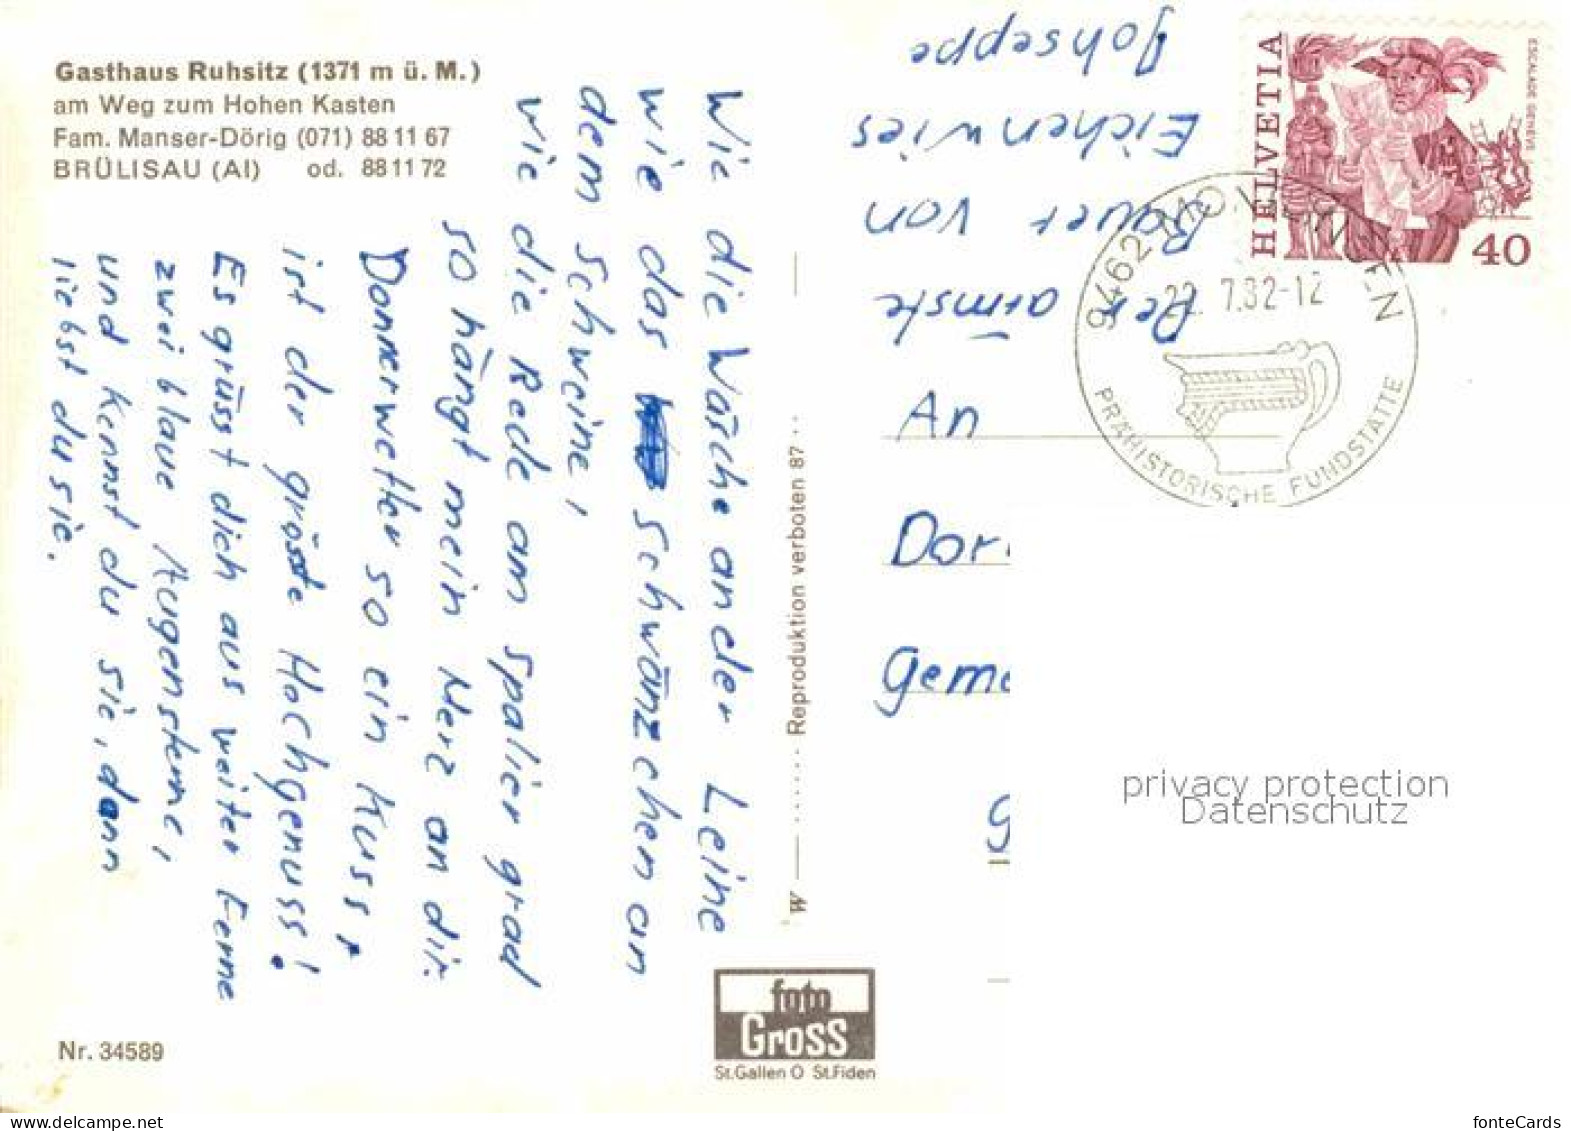 Gasthaus Ruhsitz (1371 m ü. M.)
am Weg zum Hohen Kasten
Fam. Manser-Dörig (071) 88 11 67
BRÜLISAU (AI) od. 88 11 72
Wie die Wäsche an der Leine
wie das schwänzchen an
dem Schweine,
wie die Reck am Spalier grad
so hängt mein Herz an dir.
Donnerwetter so ein Kuss
ist der grösste Hochgenuss!
Es grüsst dich aus weiter Ferne
zwei blaue Augensterne,
und kennst du sie, dann
liebst du sie.
Nr. 34589
W Reproduktion verboten 87
foto
Gross
St.Gallen O St.Fiden
Der ärmste
Bauer von
Eichenwies
Johseppe
HELVETIA
ESCALADE GENÈVE
40
9462 MO
EN
22. 7.82-12
PRÄHISTORISCHE FUNDSTÄTTE
An
Dor
Geme
privacy protection
Datenschutz
fonteCards